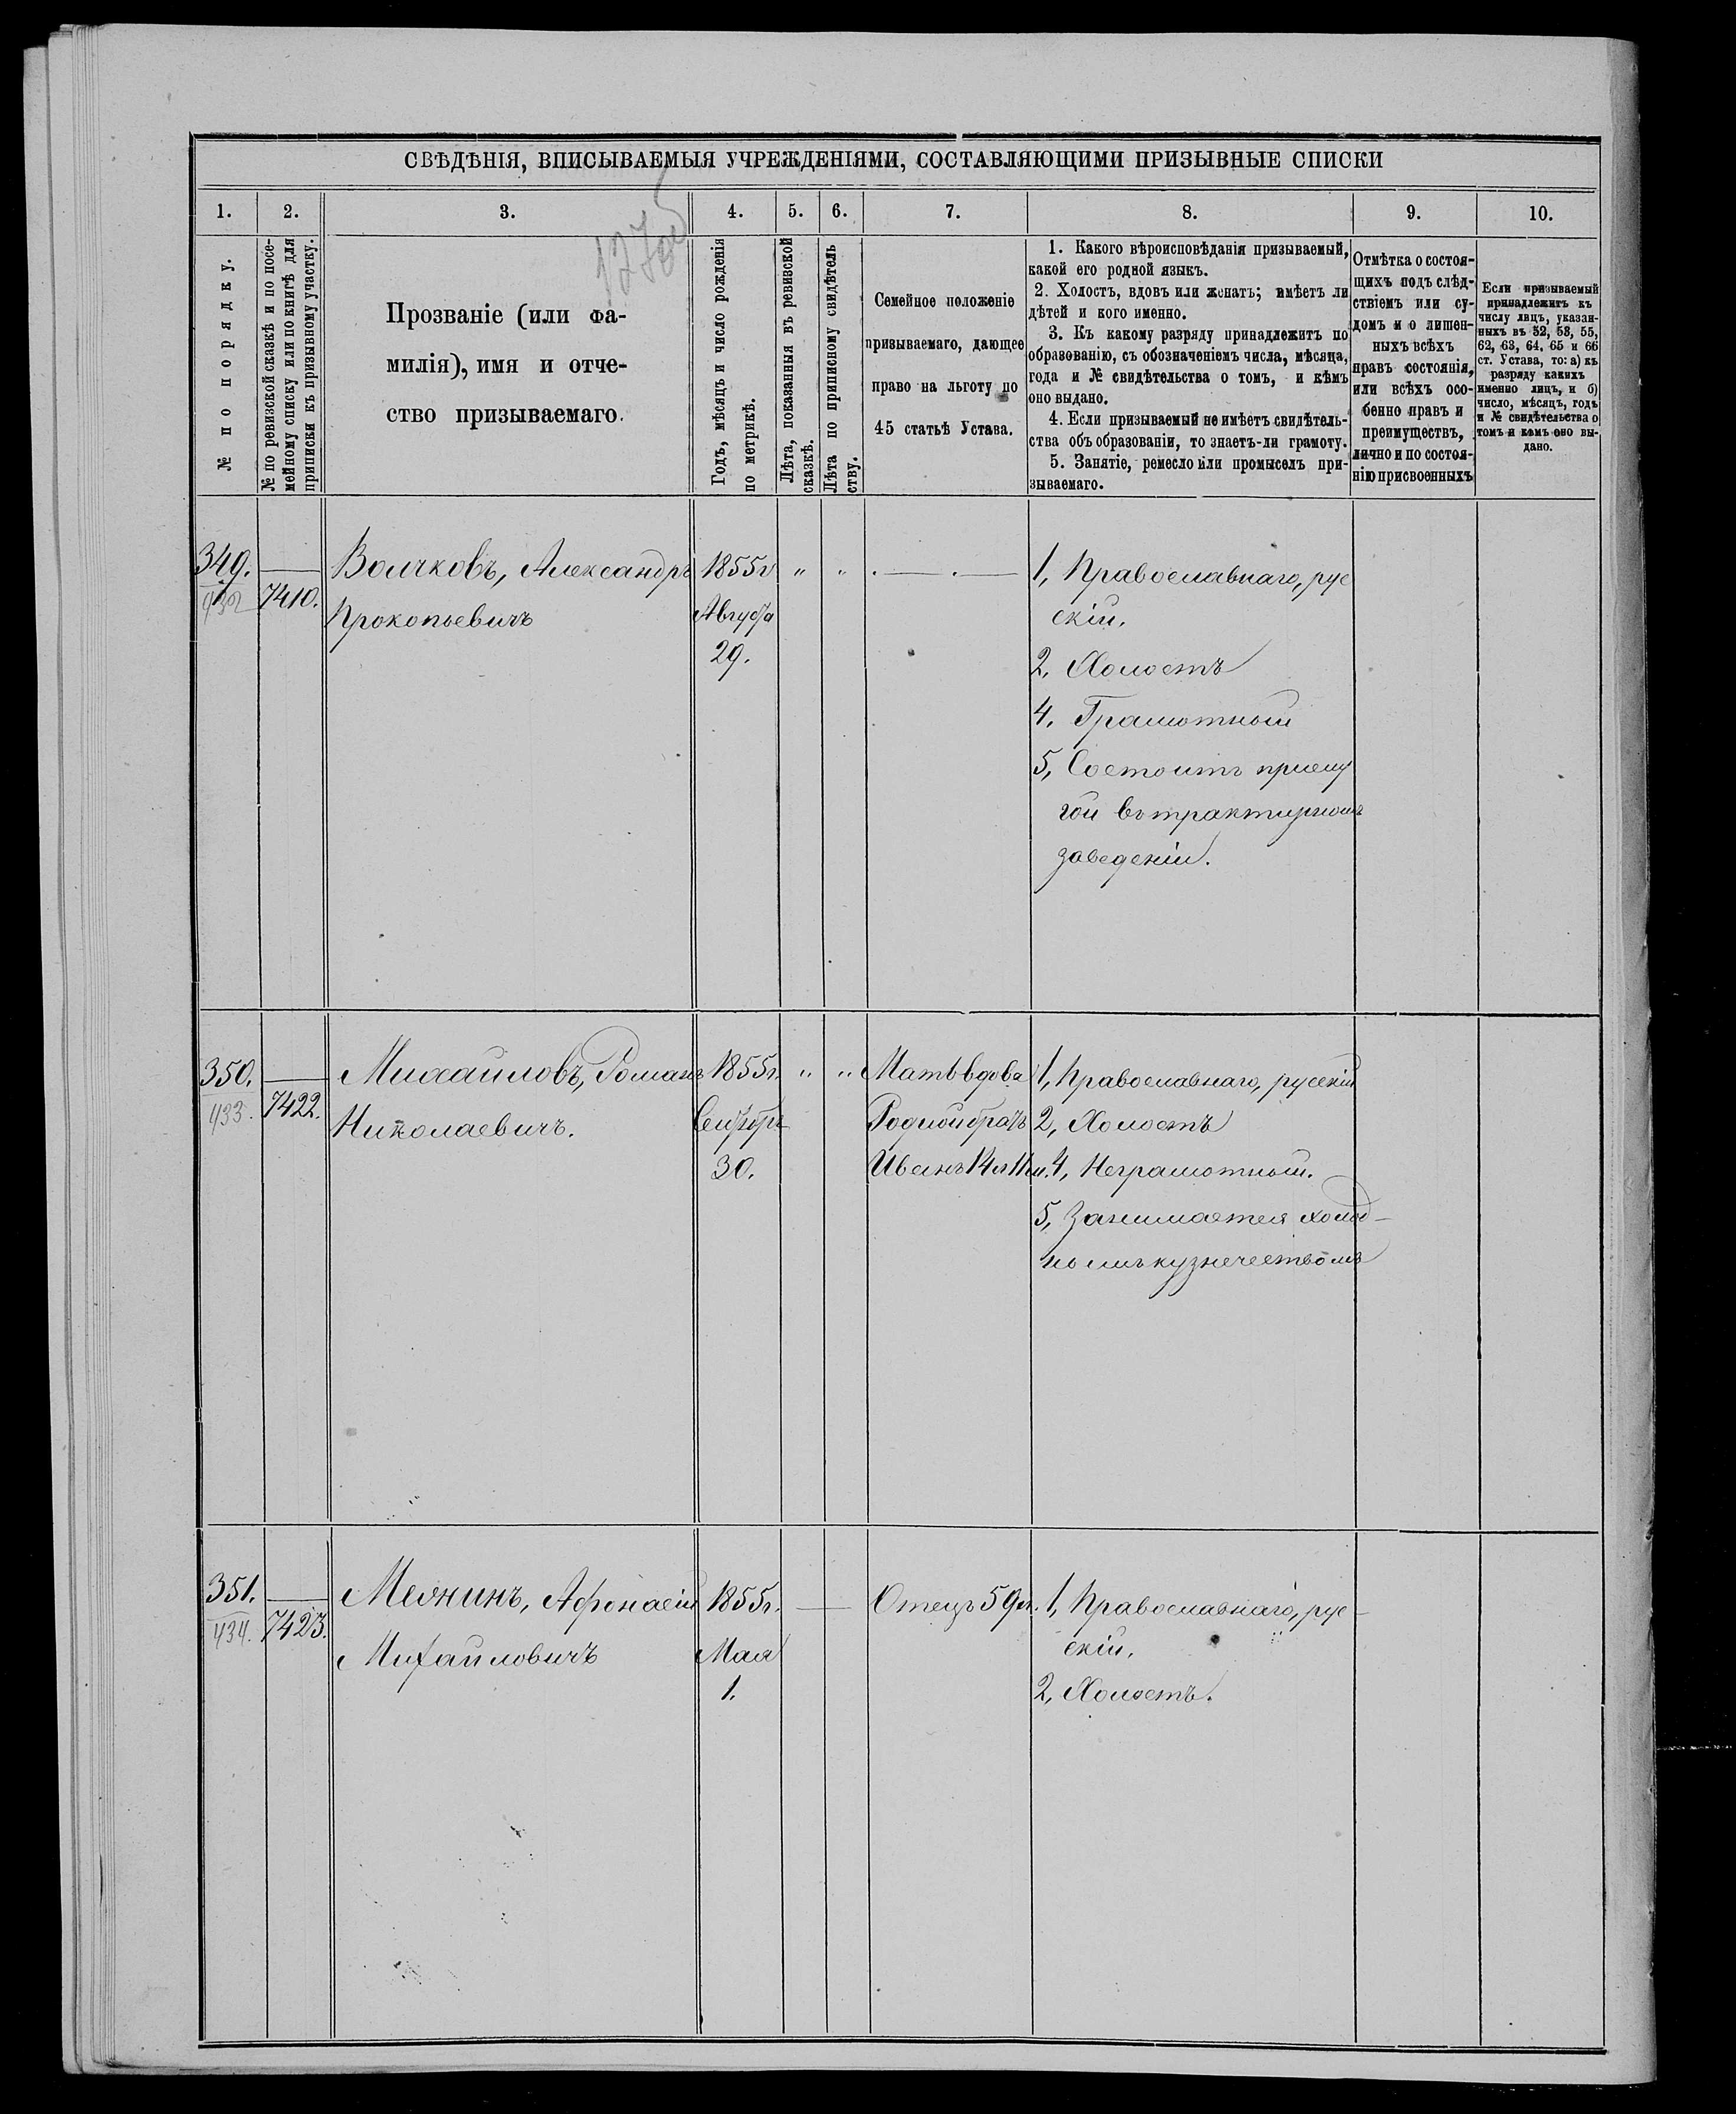 СВѢДѢНІЯ, ВПИСЫВАЕМЫЯ УЧРЕЖДЕНІЯМИ, СОСТАВЛЯЮЩИМИ ПРИЗЫВНЫЕ СПИСКИ
1. 2. 3. 4. 5. 6. 7. 8. 9. 10.
№ по порядку.
№ по ревизской сказкѣ и по посе-
мейному списку или по книгѣ для
приписки къ призывному участку.
Прозваніе (или фа-
милія), имя и отче-
ство призываемаго.
Годъ, мѣсяцъ и число рожденія
по метрикѣ.
Лѣта, показанныя въ ревизской
сказкѣ.
Лѣта по приписному свидѣтель
ству.
Семейное положеніе
призываемаго, дающее
право на льготу по
45 статьѣ Устава.
1. Какого вѣроисповѣданія призываемый,
какой его родной языкъ.
2. Холостъ, вдовъ или женатъ; имѣетъ ли
дѣтей и кого именно.
3. Къ какому разряду принадлежитъ по
образованію, съ обозначеніемъ числа, мѣсяца,
года и № свидѣтельства о томъ, и кѣмъ
оно выдано.
4. Если призываемый не имѣетъ свидѣтель-
ства объ образованіи, то знаетъ-ли грамоту.
5. Занятіе, ремесло или промыселъ при-
зываемаго.
Отмѣтка о состоя-
щихъ подъ слѣд-
ствіемъ или су-
домъ и о лишен-
ныхъ всѣхъ
правъ состоянія,
или всѣхъ осо-
бенно правъ и
преимуществъ,
лично и по состоя-
нію присвоенныхъ
Если призываемый
принадлежитъ къ
числу лицъ, указан-
ныхъ въ 52, 53, 55,
62, 63, 64, 65 и 66
ст. Устава, то: а) къ
разряду какихъ
именно лицъ, и б)
число, мѣсяцъ, годъ
и № свидѣтельства о
томъ и кѣмъ оно вы-
дано.
349.
432
7410.
Волчковъ, Александръ
Прокопьевичъ
1855 г
Августа
29.
" "
1, Православнаго, рус
скій.
2, Холостъ
4, Грамотный
5, Состоитъ прислу
гой въ трактирномъ
заведеніи.
350.
433.
7422.
Михайловъ, Романъ
Николаевичъ.
1855 г.
Сентябрь
30.
" "
Мать вдова
Родной братъ
Иванъ 14 л 11 м.
1, Православнаго, русскій
2, Холостъ
4, Неграмотный.
5, Занимается холод-
нымъ кузнечествомъ
351.
434.
7423.
Мелнинъ, Афонасій
Михайловичъ
1855 г.
Мая
1.
Отецъ 59 л.
1, Православнаго, рус-
скій.
2, Холостъ.